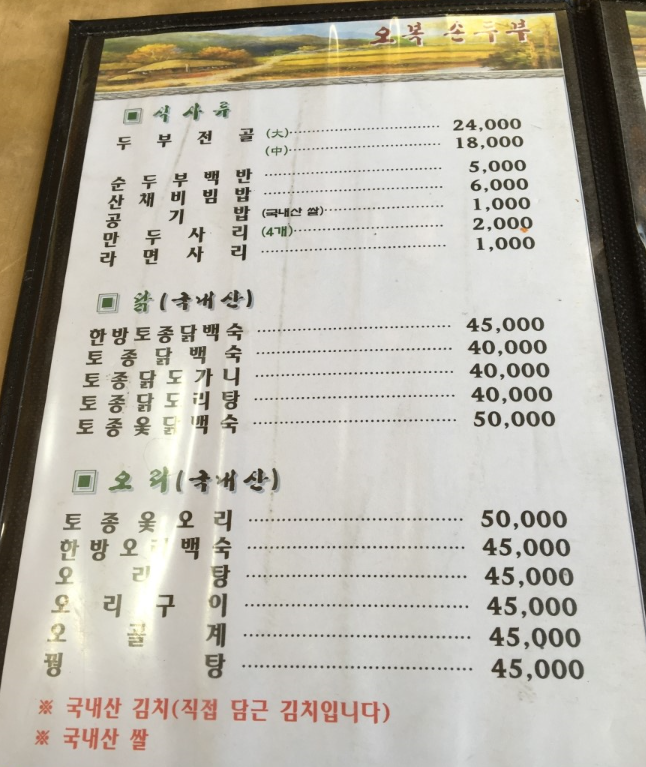 오복 손두부
식사류
두부전골 (大) 24,000
(中) 18,000
순두부백반 5,000
산채비빔밥 6,000
공기밥 (국내산 쌀) 1,000
만두사리 (4개) 2,000
라면사리 1,000
닭(국내산)
한방토종닭백숙 45,000
토종닭백숙 40,000
토종닭도가니 40,000
토종닭도리탕 40,000
토종옻닭백숙 50,000
오리(국내산)
토종옻오리 50,000
한방오리백숙 45,000
오리탕 45,000
오리구이 45,000
오골계 45,000
꿩탕 45,000
※ 국내산 김치(직접 담근 김치입니다)
※ 국내산 쌀